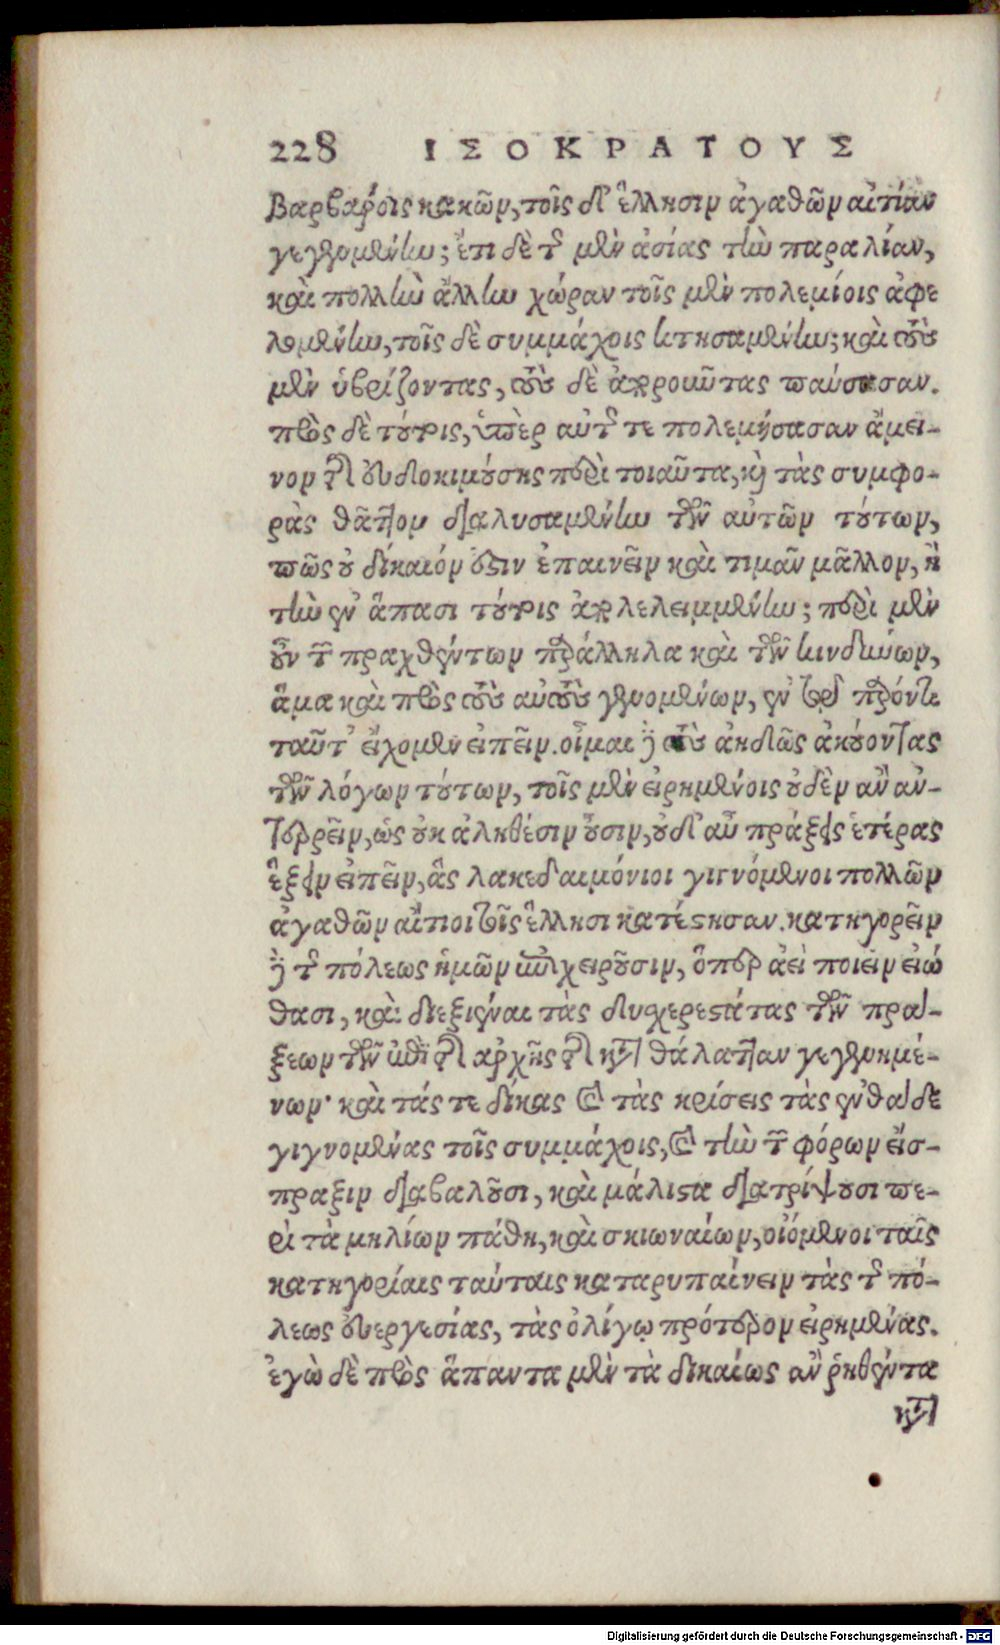 228 ΙΣΟΚΡΑΤΟΥΣ
βαρβάροις κακῶν, τοῖς δ' ἕλλησιν ἀγαθῶν αἰτίαν
γεγενομένην; ἔτι δὲ τῆς μὲν ἀσίας τὴν παραλίαν,
καὶ πολλὴν ἄλλην χώραν τοῖς μὲν πολεμίοις ἀφε
λομένην, τοῖς δὲ συμμάχοις κτησαμένην; καὶ τοὺς
μὲν ὑβρίζοντας, τοὺς δὲ ἀποροῦντας παύσασαν.
πρὸς δὲ τούτοις, ὑπὲρ αὑτῆς τε πολεμήσασαν ἄμει-
νον τῆς εὐδοκιμούσης περὶ τοιαῦτα, καὶ τὰς συμφο-
ρὰς θᾶττον διαλυσαμένην τῶν αὐτῶν τούτων,
πῶς οὐ δίκαιόν ἐστιν ἐπαινεῖν καὶ τιμᾶν μᾶλλον, ἢ
τὴν ἐν ἅπασι τούτοις ἀπολελειμμένην; περὶ μὲν
οὖν τῶν πραχθέντων παράλληλα καὶ τῶν κινδύνων,
ἅμα καὶ πρὸς τοὺς αὐτοὺς γενομένων, ἐν τῷ παρόντι
ταῦτ' εἴχομεν εἰπεῖν. οἶμαι δὲ τοὺς ἀηδῶς ἀκούοντας
τῶν λόγων τούτων, τοῖς μὲν εἰρημένοις οὐδὲν ἂν ἀν-
τερεῖν, ὡς οὐκ ἀληθέσιν οὖσιν, οὐδ' αὖ πράξεις ἑτέρας
ἕξειν εἰπεῖν, ἃς λακεδαιμόνιοι γιγνόμενοι πολλῶν
ἀγαθῶν αἴτιοι τοῖς ἕλλησι κατέστησαν. κατηγορεῖν
δὲ τῆς πόλεως ἡμῶν ἐπιχειροῦσιν, ὅπερ ἀεὶ ποιεῖν εἰώ
θασι, καὶ διεξιέναι τὰς δυσχερεστάτας τῶν πρά-
ξεων τῶν ἐπὶ τῆς ἀρχῆς τῆς κατὰ θάλατταν γεγενημέ-
νων· καὶ τάς τε δίκας καὶ τὰς κρίσεις τὰς ἐνθάδε
γιγνομένας τοῖς συμμάχοις, καὶ τὴν τῶν φόρων εἴσ-
πραξιν διαβαλοῦσι, καὶ μάλιστα διατρίψουσι πε-
ρὶ τὰ μηλίων πάθη, καὶ σκιωναίων, οἰόμενοι ταῖς
κατηγορίαις ταύταις καταρυπαίνειν τὰς τῆς πό-
λεως εὐεργεσίας, τὰς ὀλίγῳ πρότερον εἰρημένας.
ἐγὼ δὲ πρὸς ἅπαντα μὲν τὰ δικαίως ἂν ῥηθέντα
κατὰ
Digitalisierung gefördert durch die Deutsche Forschungsgemeinschaft - DFG